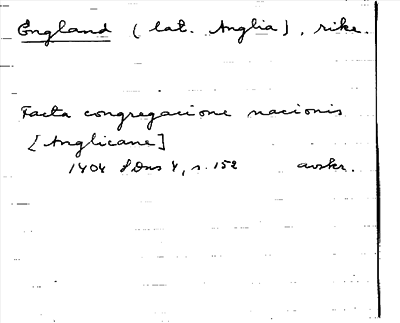 England (lat. Anglia), rike.
Facta congregacione nacionis
[Anglicane]
1404 s. 152 avskr.